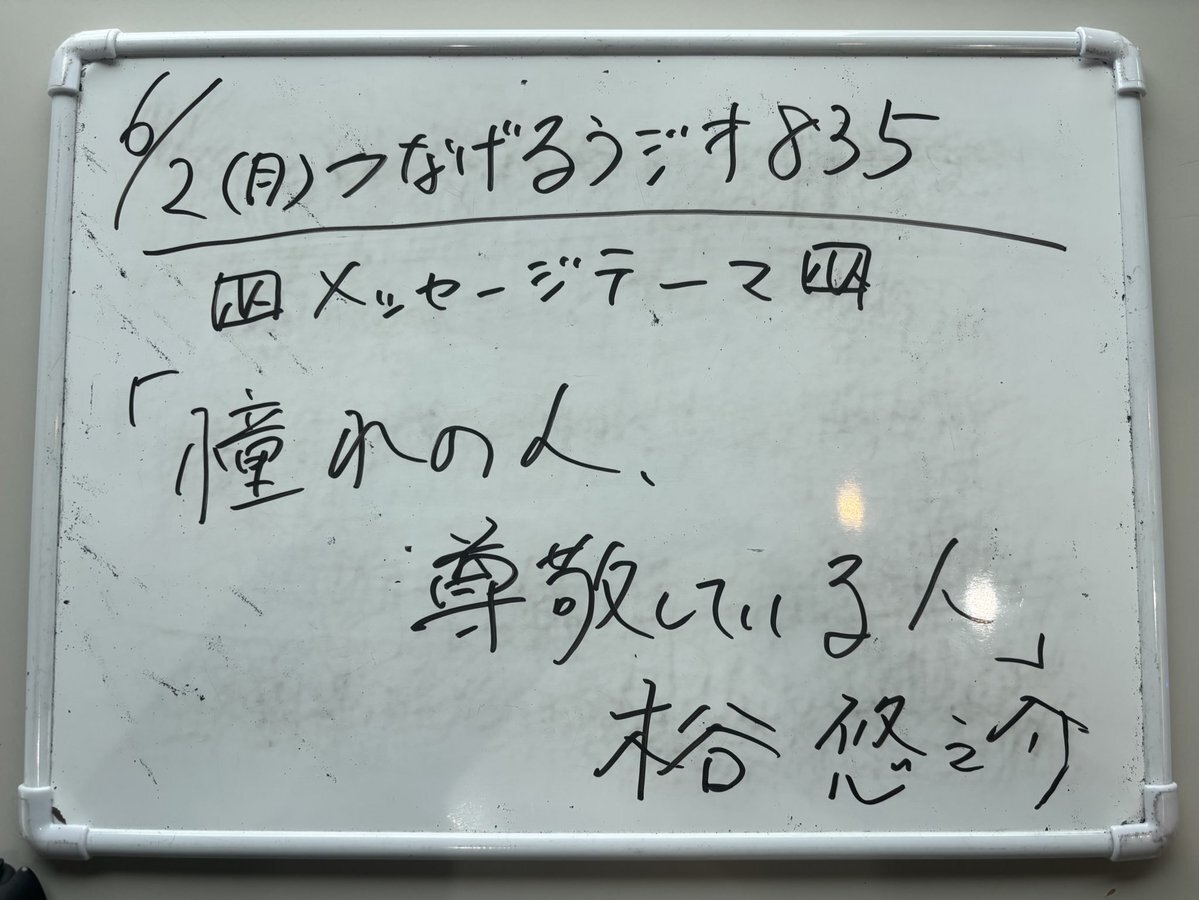 6/2(月)つなげるラジオ835
メッセージテーマ
「憧れの人、
尊敬している人」
木谷 悠之介